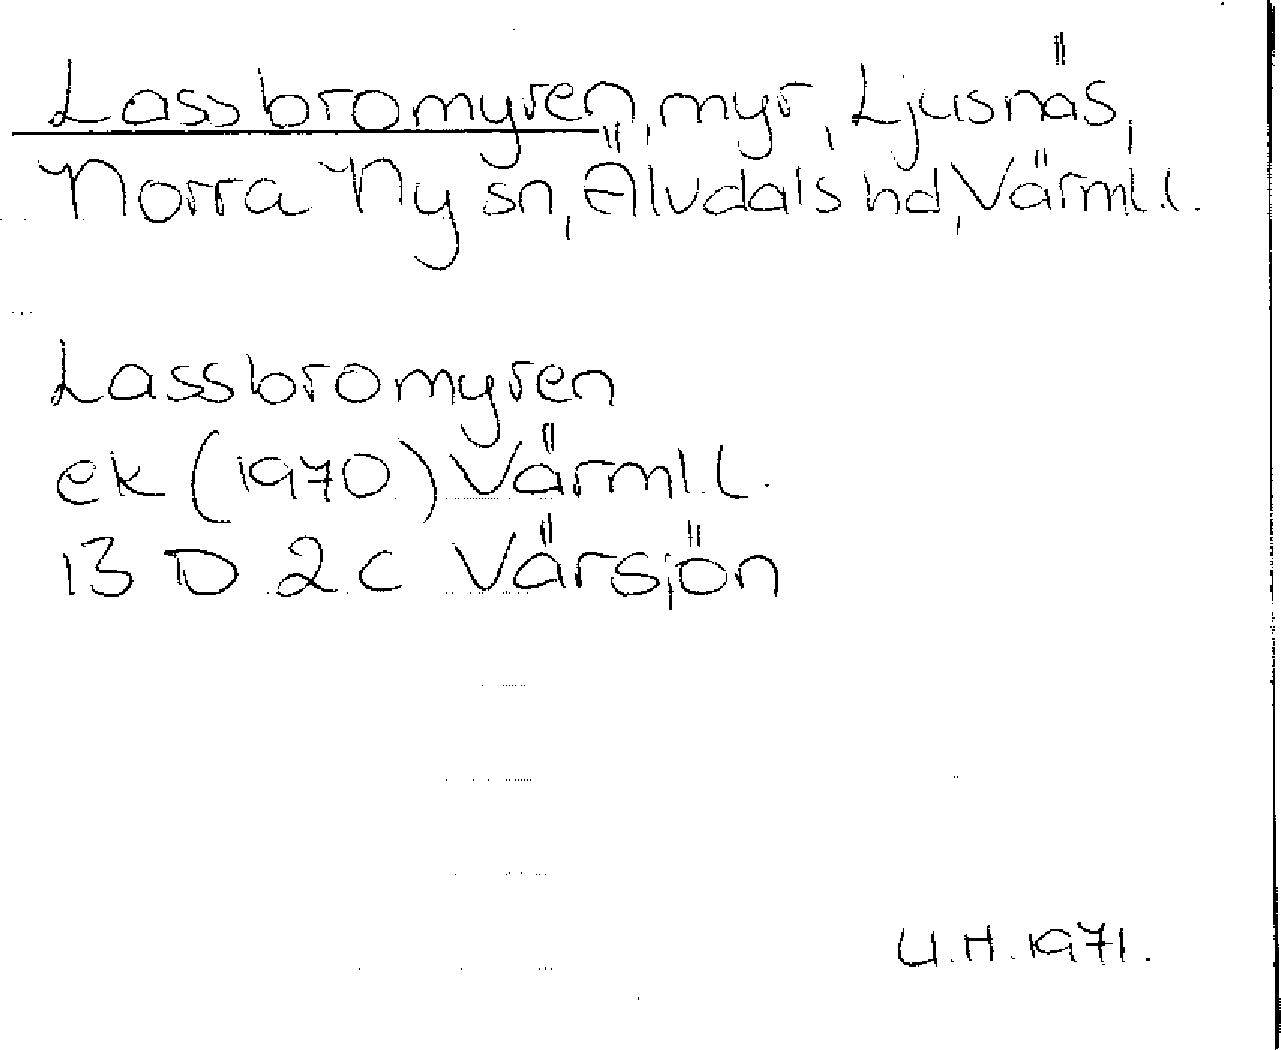 Lassbromyren, myr, Ljusnäs,
Norra Ny sn, Älvdals hd, Värml.l.
Lassbromyren
ek (1970) Värml.l.
13 D 2c Värsjön
U.H. 1971.